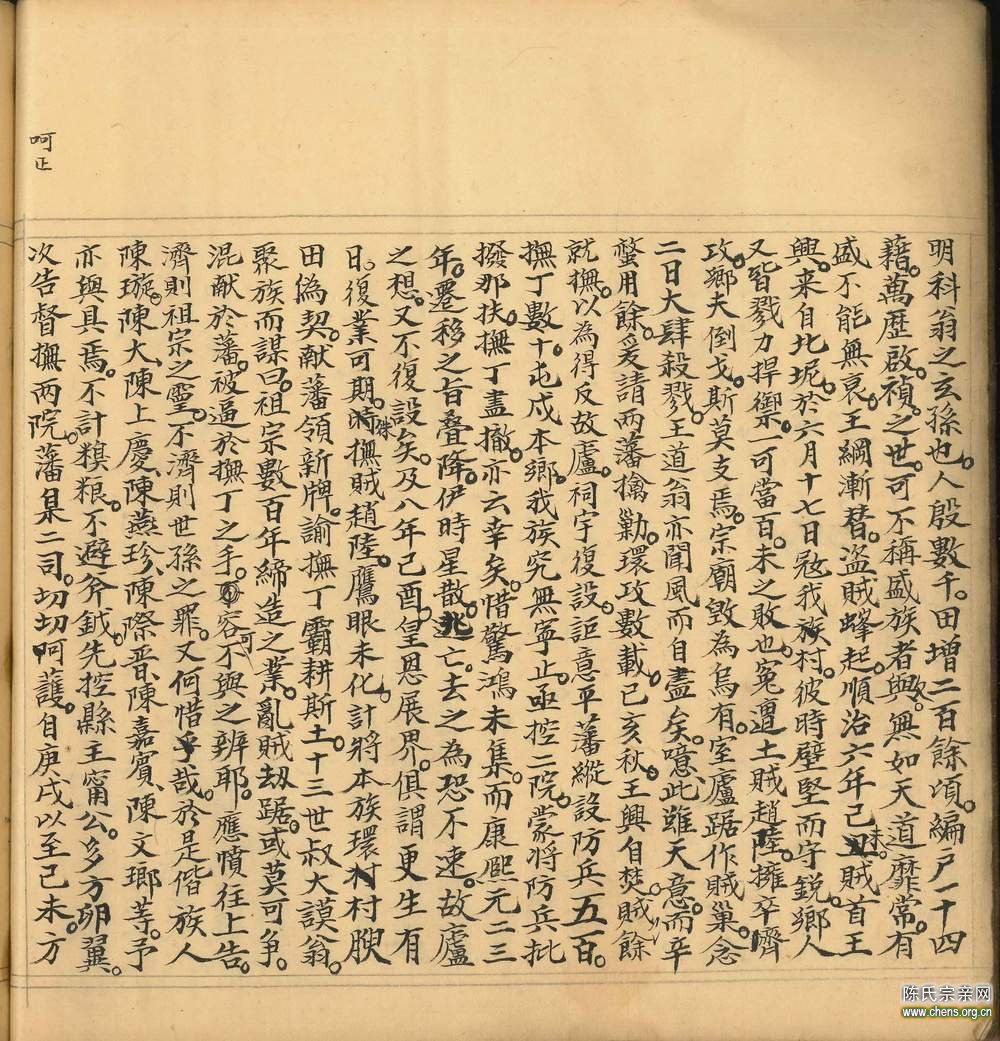 明科翁之玄孫也。人殷數千。田增二百餘頃。編戶一十四
藉。萬歷啟。禎。之世。可不稱盛族者與。無如天道靡常。有
盛不能無哀。王綱漸替。盗賊蜂起。順治六年己丑。賊首王
興。来自北坭。於六月十七日寇我族村。彼時壁堅而守鋭。鄉人
又皆戮力捍禦。一可當百。未之敗也。寃遭土賊趙陸。擁卒儕
攻。鄉夫倒戈。斯莫支焉。宗廟毀為烏有。室廬踞作賊巢。念
二日大肆殺戮。王道翁亦聞風而自盡矣。噫此雖天意。而辛
螫用餘。爰請兩藩擒勦。環攻數載。己亥秋王興自焚。賊餘
就撫。以為得反故廬。祠宇復設。詎意平藩縱設防兵五百。
撫丁數十。屯戍本鄉。我族究無寧止。亟控二院。蒙將防兵批
撥那扶。撫丁盡撤。亦云幸矣。惜驚鴻未集。而康熈元二三
年。遷移之旨叠降。伊時星散。逃亡。去之為恐不速。故廬
之想。又不復設矣。及八年己酉。皇恩展界。俱謂更生有
日。復業可期。時撫賊趙陸。鷹眼未化。計將本族環村村腴
田偽契。献藩領新牌。諭撫丁霸耕斯土。十三世叔大謨翁。
聚族而謀曰。祖宗數百年締造之業。亂賊刼踞。或莫可争。
混献於藩。被逼於撫丁之手。可容不與之辨耶。應憤往上告。
濟則祖宗之靈。不濟則世孫之罪。又何惜乎哉。於是偕族人
陳璇。陳大、陳上慶、陳燕珍、陳際晋、陳嘉賓、陳文瑯等。予
亦與具焉。不計糗粮。不避斧鉞。先控縣主甯公。多方卵翼。
次告督撫两院。藩臬二司。切切呵護。自庚戌以至己未。方
呵正
陈氏宗亲网
www.chens.org.cn